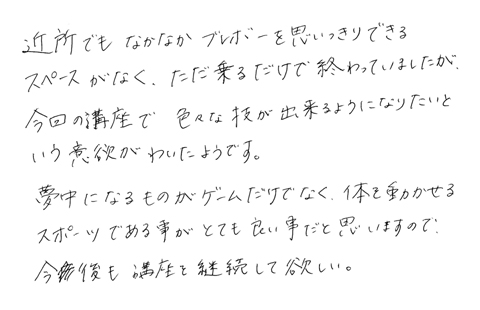 近所でも なかなか ブレボーを思いっきりできる
スペースがなく、ただ乗るだけで終わっていましたが、
今回の講座で 色々な技が出来るようになりたいと
いう意欲がわいたようです。
夢中になるものがゲームだけでなく、体を動かせる
スポーツである事がとても良い事だと思いますので、
今後も 講座を継続して欲しい。